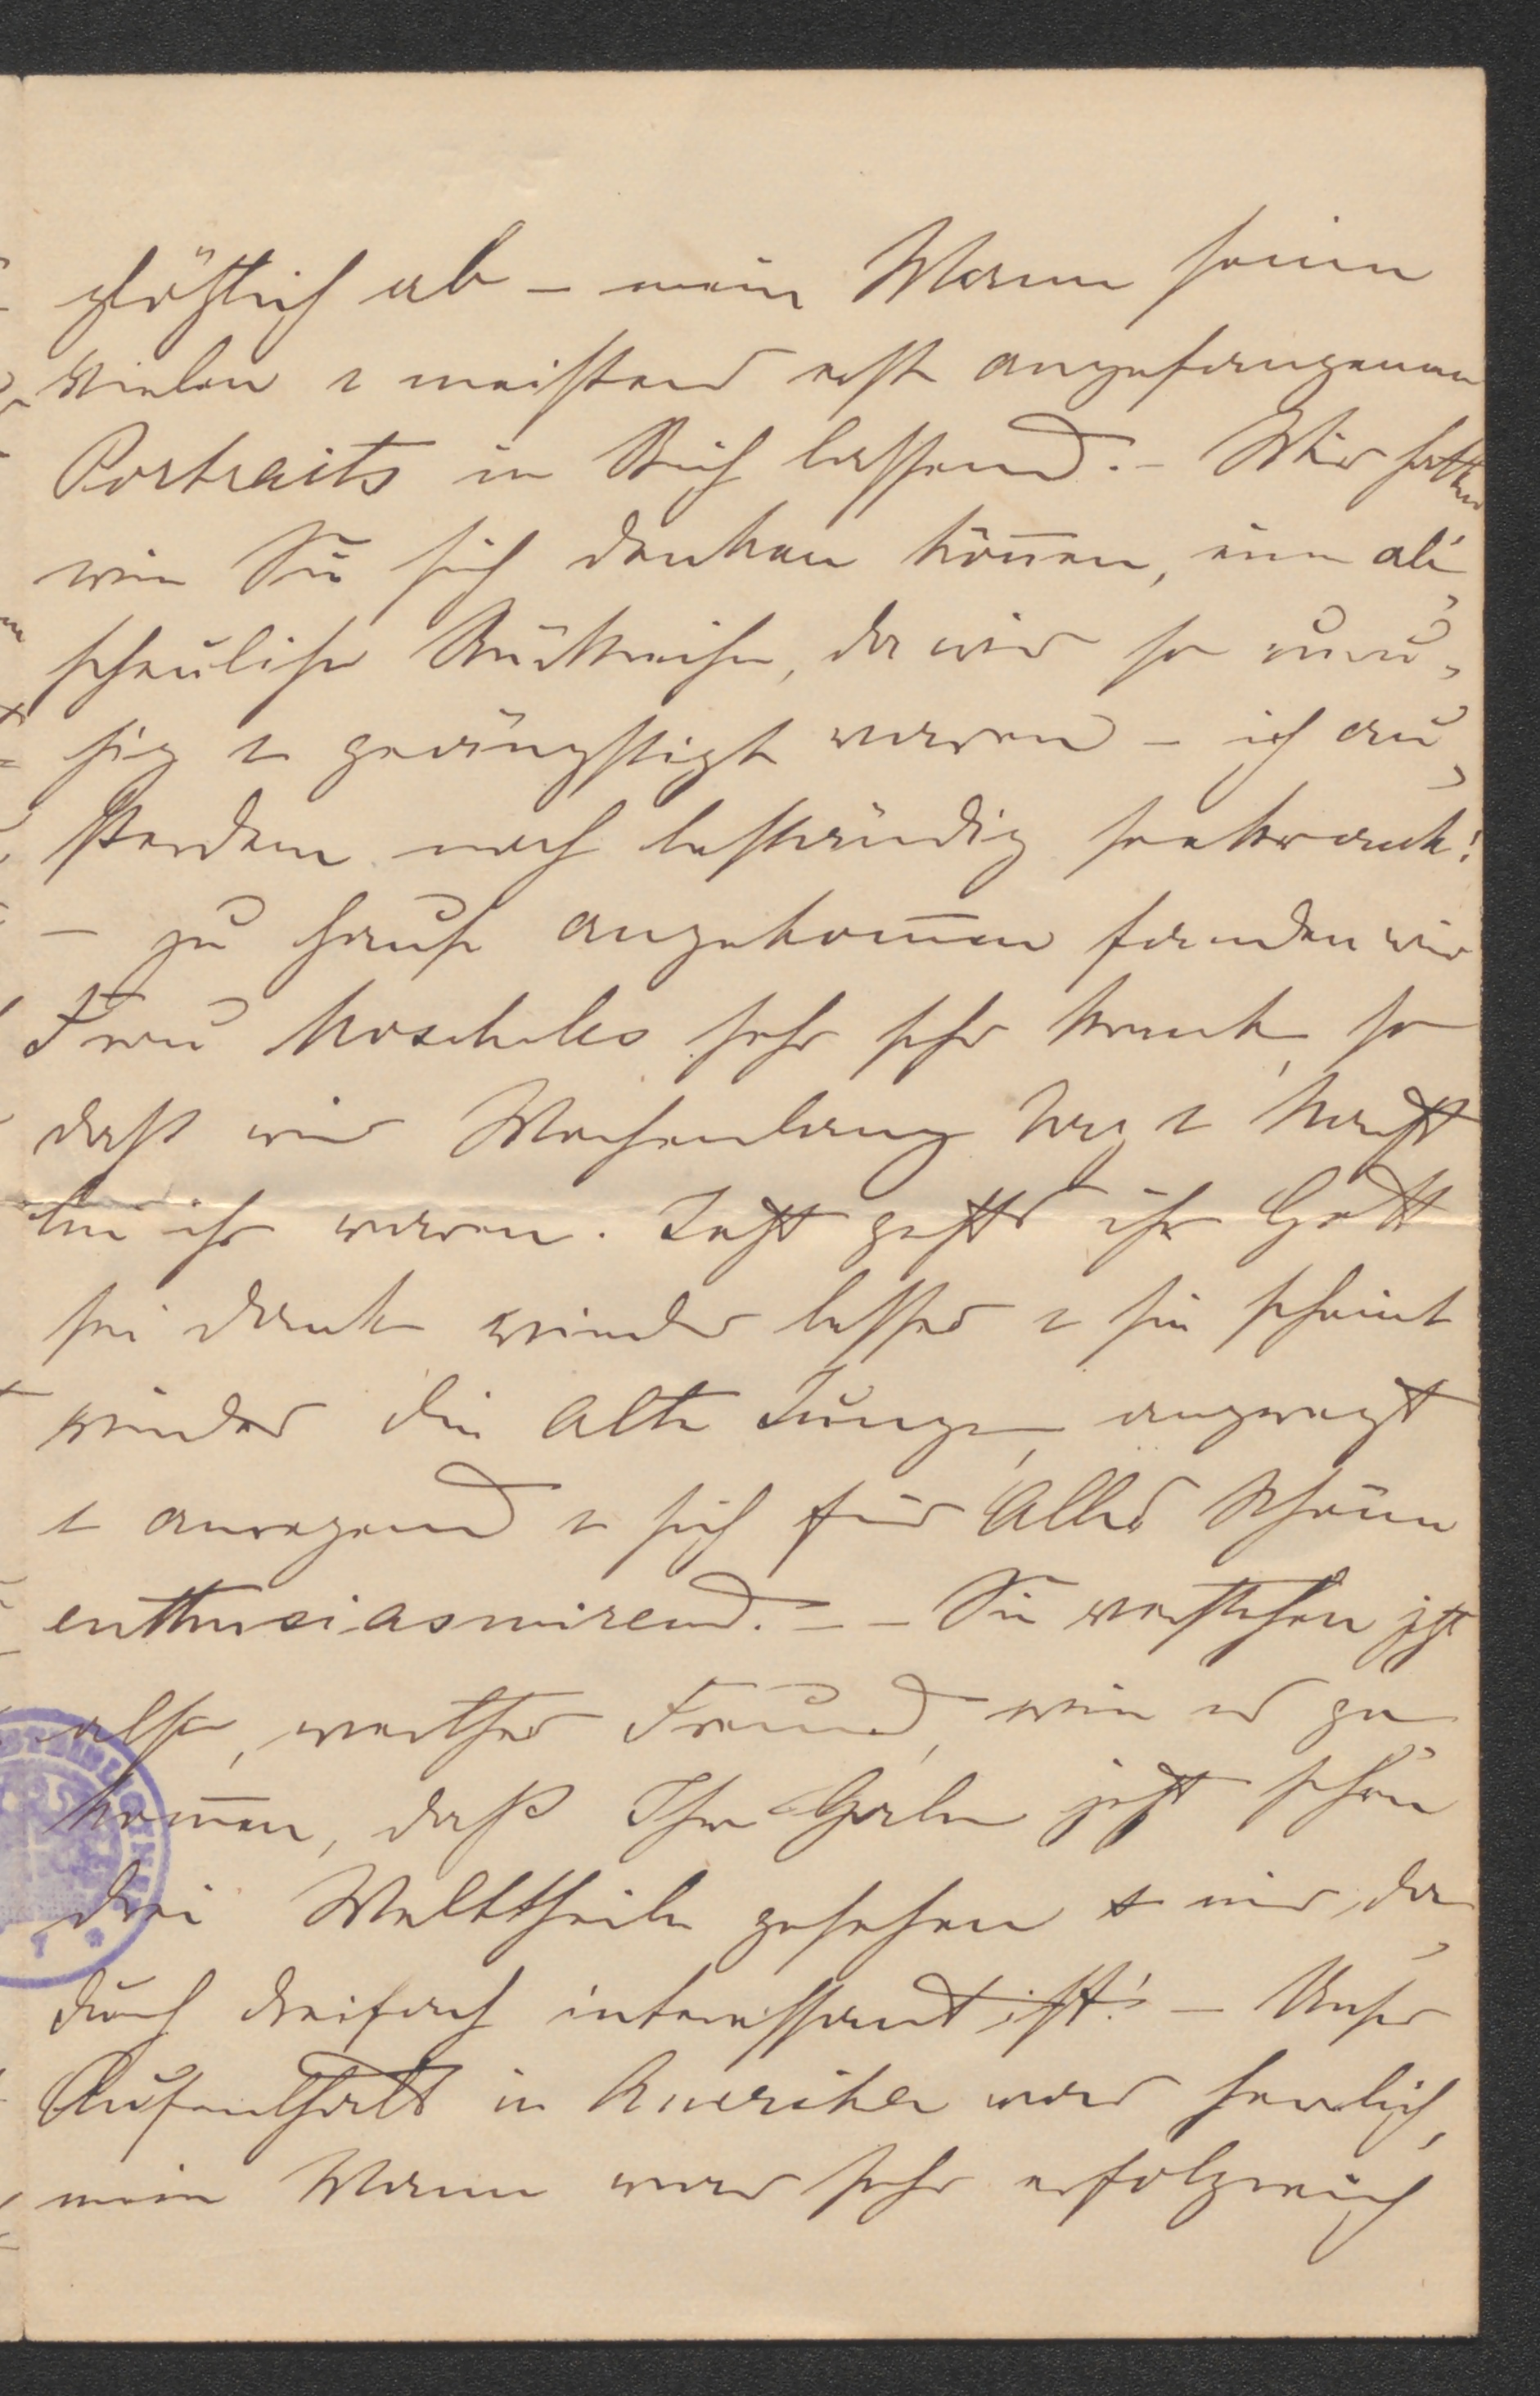 plötzlich ab – mein Mann seine
vielen & meistens erst angefangenen
Portraits in Stich lassend. – Wir hatten
wie Sie sich denken können, eine ab,
scheuliche Rückreise, da wir so unru,
hig & geängstigt waren – ich au,
ßerdem noch beständig seekrank!
– zu Hause angekommen fanden wir
Frau Moscheles sehr sehr krank, so
daß wir Wochenlang Tag & Nacht
bei ihr waren. Jetzt geht's ihr Gott
sei dank wieder besser & sie scheint
wieder die Alte Junge, angeregt
& anregend & sich für Alles Schöne
enthusiasmirend. – – Sie verstehen jetzt
also, werther Freund, wie es ge,
kommen, daß Ihre Gabe jetzt schon
drei Welttheile gesehen & mir da,
durch dreifach interessant ist! – Unser
Aufenthalt in Amerika war herrlich,
mein Mann war sehr erfolgreich